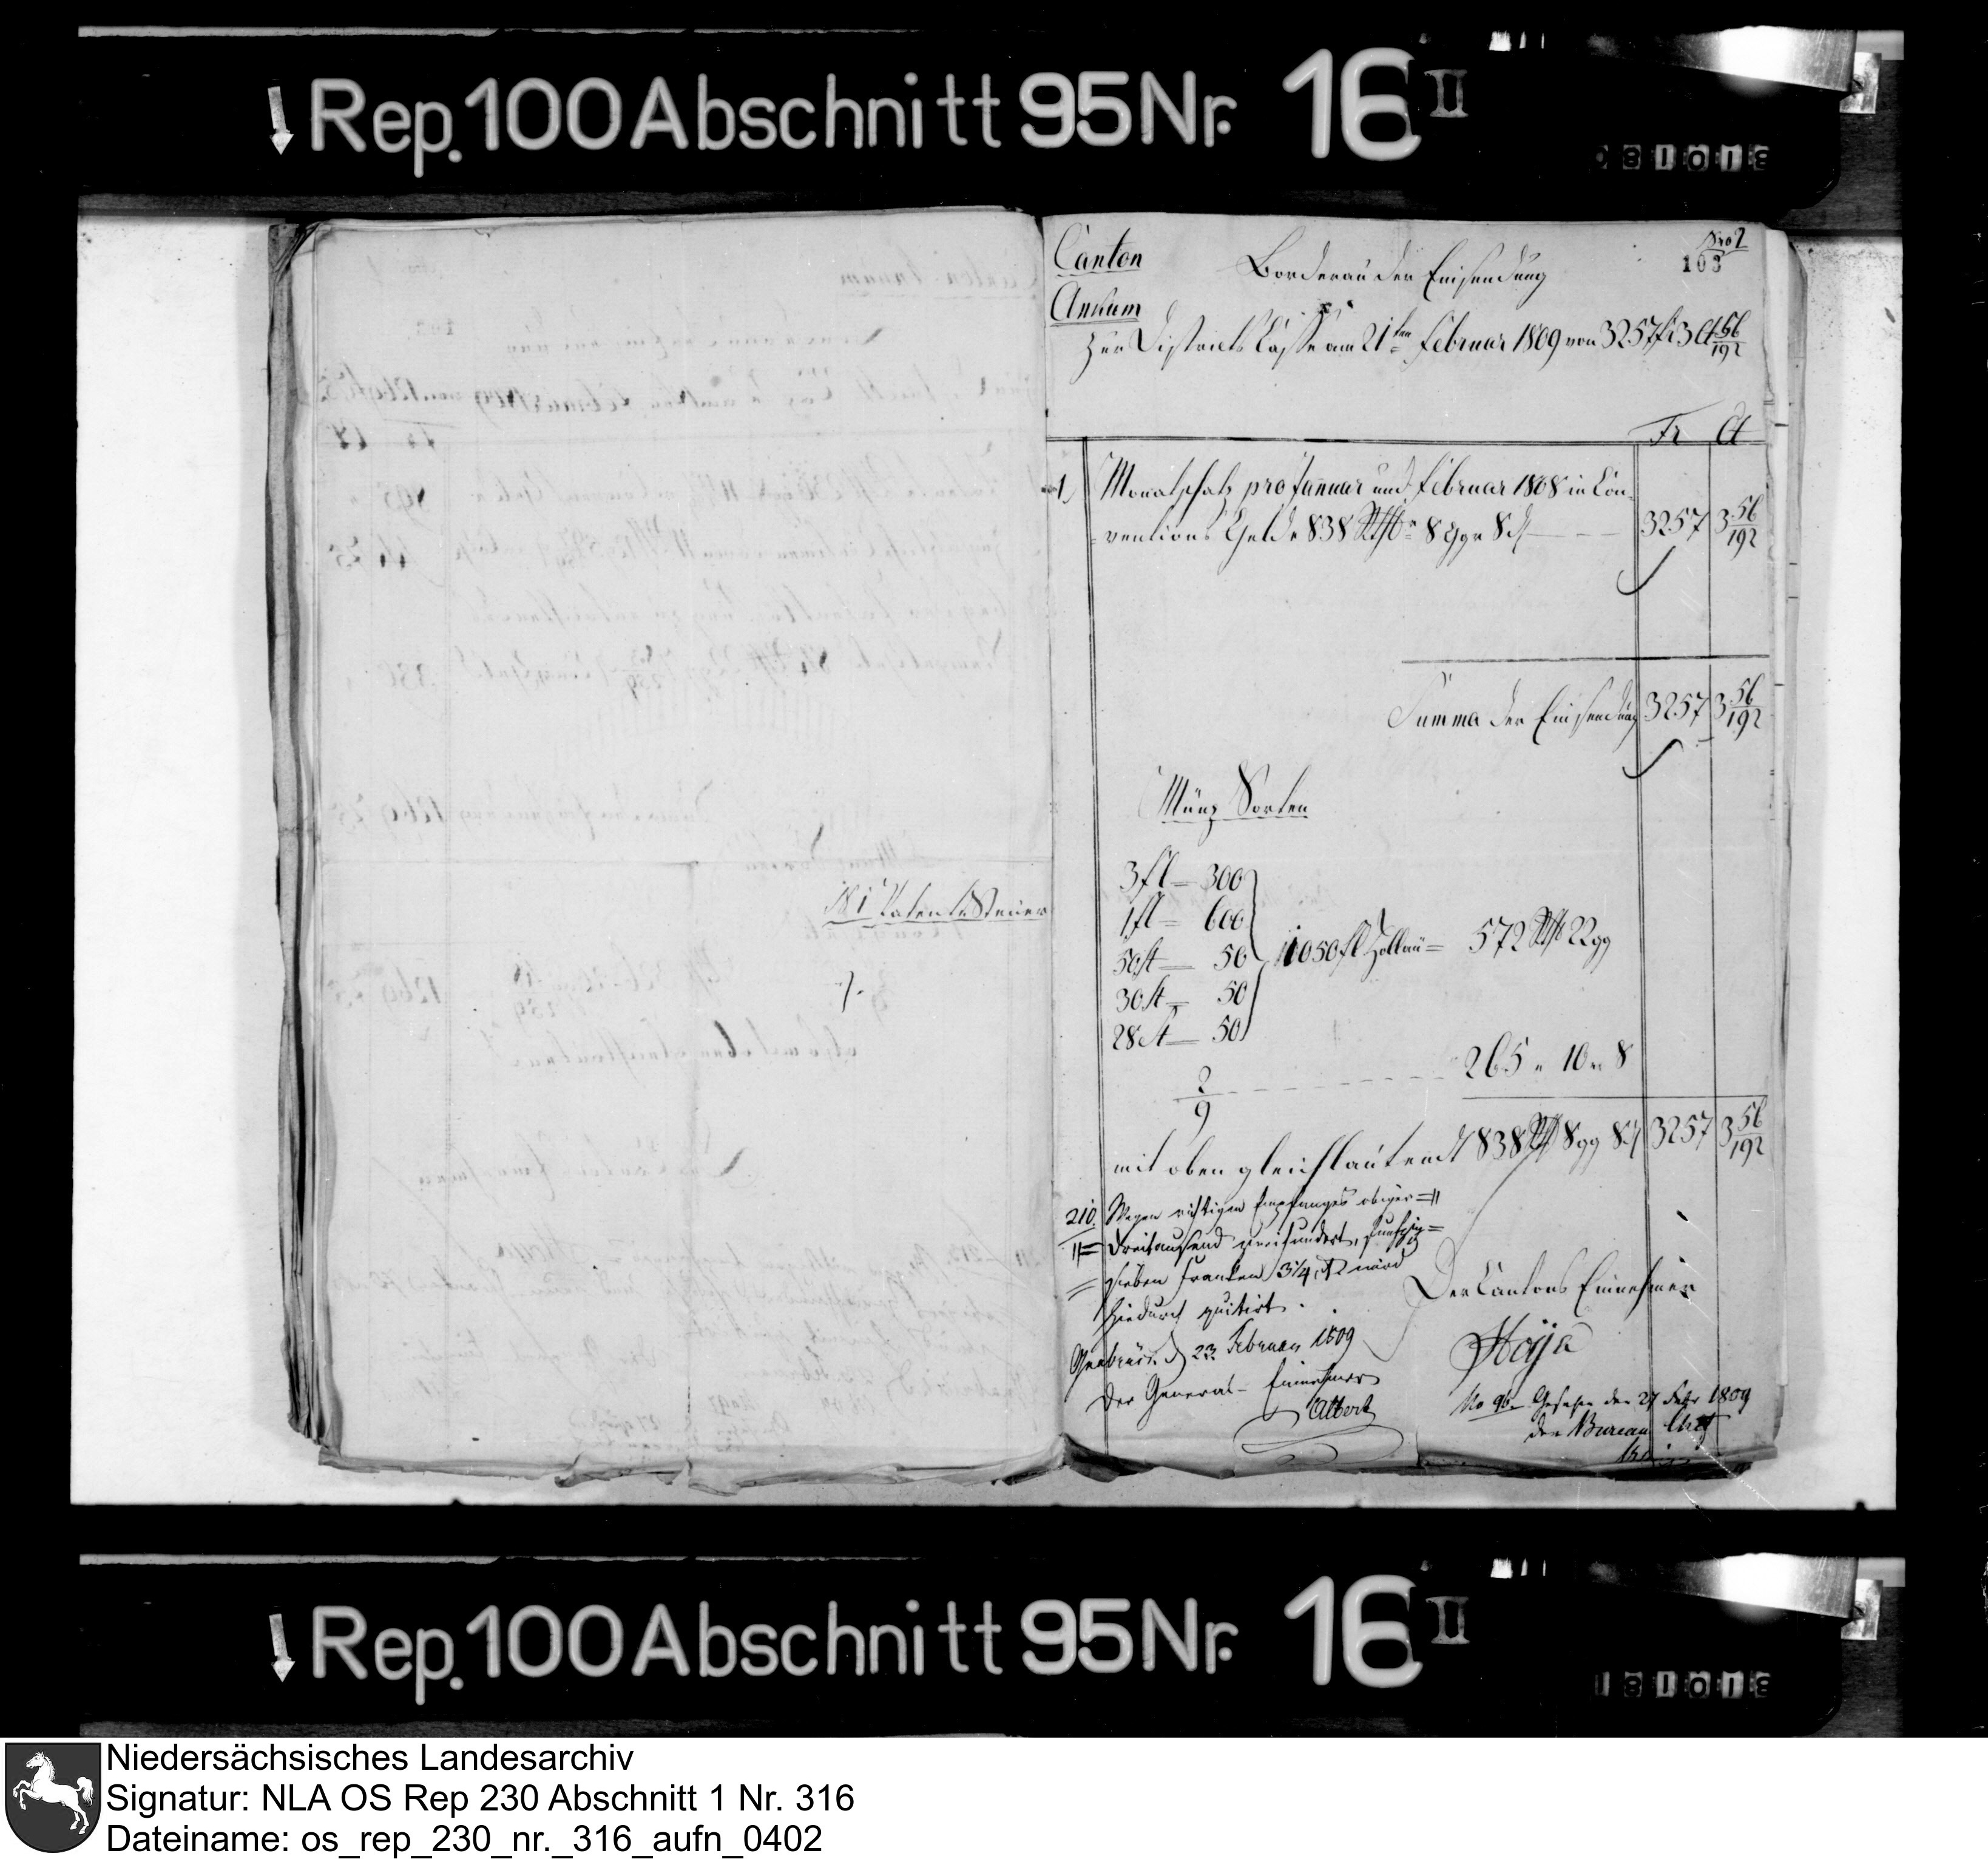 Rep. 100 Abschnitt 95 Nr. 16 II
Nro 2
103
Canton
Ankum
Borderau der Einsendung
zur Districts Casse am 21ten Februar 1809 von 3257 fr 3 Ct 56/192
Fr Ct
1, Monatschatz pro Januar und Februar 1808 in Con-
ventions Gelde 838 Rthlr 8 ggr 8 d 3257 3 56/192
Summa der Einsendung 3257 3 56/192
Münz Sorten
3 fl = 300
1 fl = 600
50 st = 50
30 st = 50
28 st = 50
11050 fl = 572 Rthlr 22 gg
2/9 265 " 10 " 8
mit oben gleichlautend 838 Rthlr 8 gg 8 d 3257 3 56/192
210. Wegen richtigen Empfanges obiger =
= Dreitausend zweihundert, fünfzig =
= sieben Franken 3 1/4 Ct wird
hiedurch quitirt.
Osnabrück d 23 Februar 1809
Der General-Einnehmer
Albert
Der Cantons Einnehmer
Hoya
No 96. Gesehen den 27 Febr 1809
der Bureau Chef
N 1 Patent Steuer
Niedersächsisches Landesarchiv
Signatur: NLA OS Rep 230 Abschnitt 1 Nr. 316
Dateiname: os_rep_230_nr._316_aufn_0402
Rep. 100 Abschnitt 95 Nr. 16 II